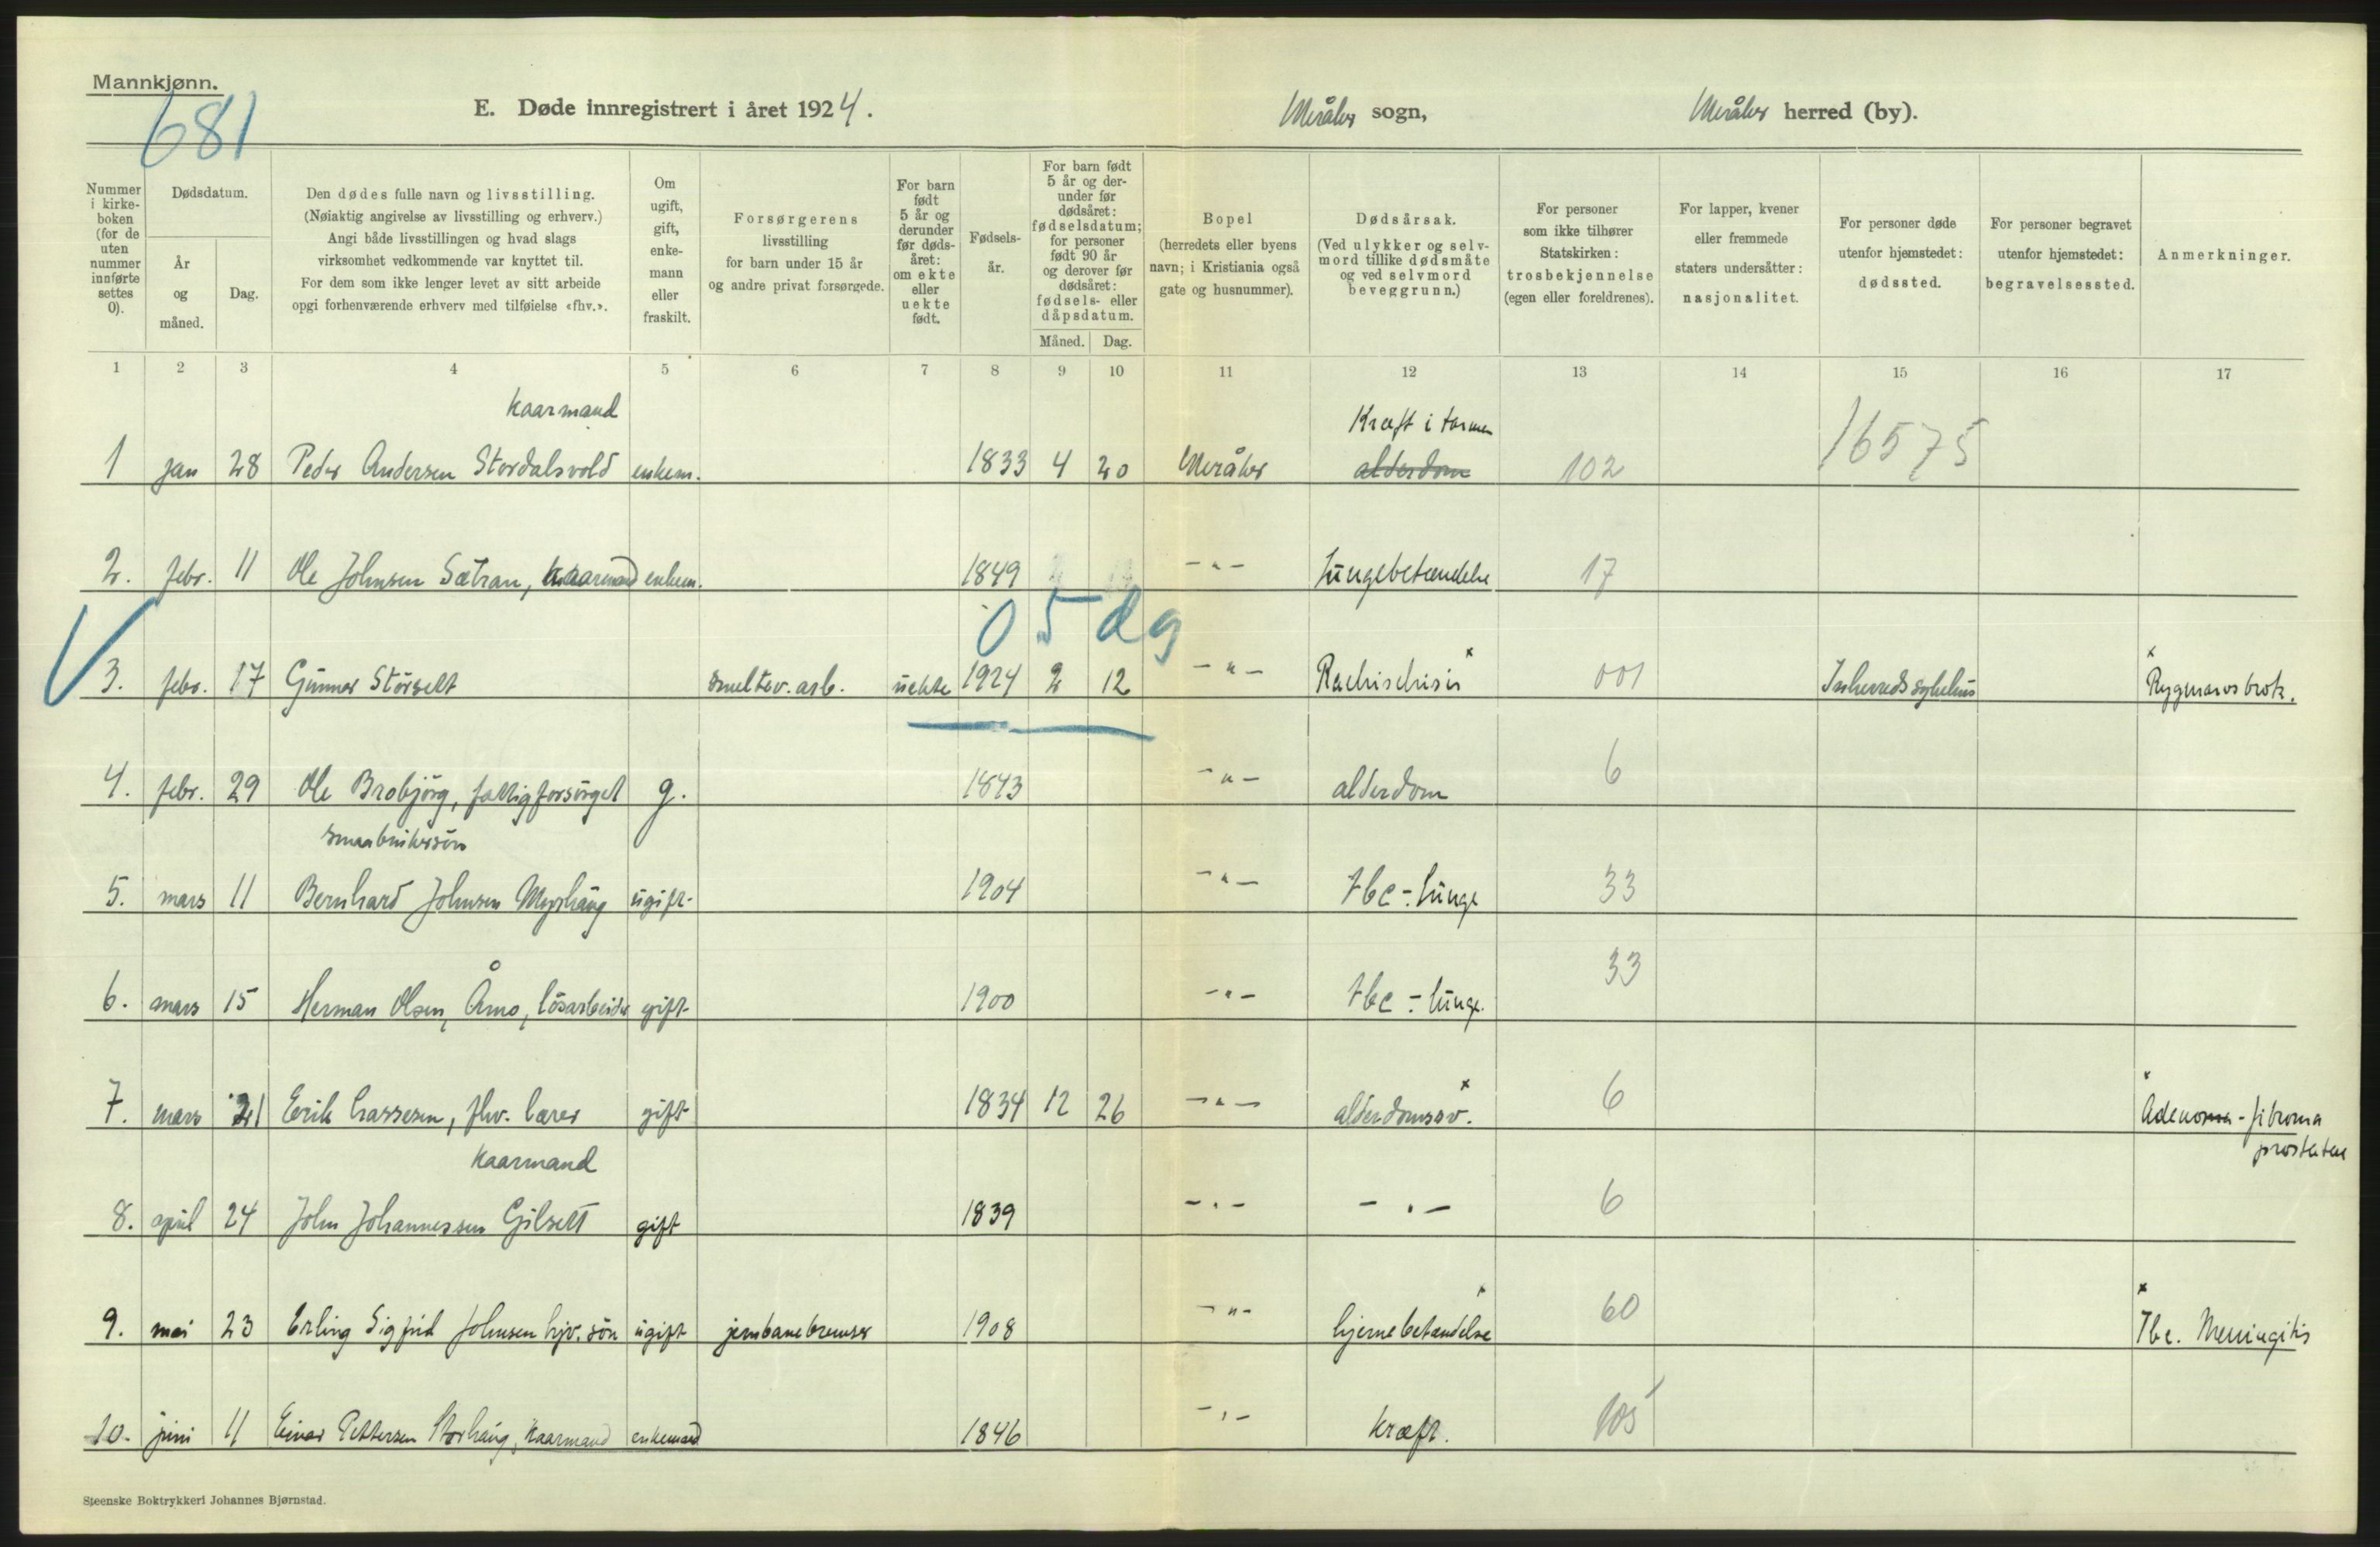 Mannkjønn.
681
E. Døde innregistrert i året 1924.
Meråker sogn,
Meråker herred (by).
Nummer i kirke-boken (for de uten nummer innførte settes 0).
Dødsdatum.
År og måned.
Dag.
Den dødes fulle navn og livsstilling.
(Nøiaktig angivelse av livsstilling og erhverv.)
Angi både livsstillingen og hvad slags
virksomhet vedkommende var knyttet til.
For dem som ikke lenger levet av sitt arbeide
opgi forhenværende erhverv med tilføielse «fhv.».
Om ugift, gift, enke-mann eller fraskilt.
Forsørgerens
livsstilling
for barn under 15 år
og andre privat forsørgede.
For barn født 5 år og derunder før døds-året: om ekte eller uekte født.
Fødsels-år.
For barn født 5 år og der-under før dødsåret: fødselsdatum; for personer født 90 år og derover før dødsåret: fødsels- eller dåpsdatum.
Måned. Dag.
Bopel
(herredets eller byens
navn; i Kristiania også
gate og husnummer).
Dødsårsak.
(Ved ulykker og selv-
mord tillike dødsmåte
og ved selvmord
beveggrunn.)
For personer
som ikke tilhører
Statskirken:
trosbekjennelse
(egen eller foreldrenes).
For lapper, kvener
eller fremmede
staters undersåtter:
nasjonalitet.
For personer døde
utenfor hjemstedet:
dødssted.
For personer begravet
utenfor hjemstedet:
begravelsessted.
Anmerkninger.
1 2 3 4 5 6 7 8 9 10 11 12 13 14 15 16 17
Kaarmand Kræft i tarmen
1 jan 28 Peder Andersen Stordalsvold enkem. 1833 4 20 Meråker alderdom 102 16575
2. febr. 11 Ole Johnsen Sætran, Kaarmand enkem. 1849 -"- Lungebetændelse 17
0 5 dg
3. febr. 17 Gunnar Størseth smeltev. arb. uekte 1924 2 12 -"- Rachischisis x 001 Inherreds sykehus x Rygmarvsbrok.
4. febr. 29 Ole Brobjørg, fattigforsørget g. 1843 -"- alderdom 6
smaabrukersøn
5. mars 11 Bernhard Johnsen Myrhaug ugift- 1904 -"- tbc-lunge 33
6. mars 15 Herman Olsen, Åmo, løsarbeider gift- 1900 -"- tbc-lunge. 33
7. mars 21 Erik Lassesen, fhv. lærer gift- 1834 12 26 -"- alderdomssv. x 6 x Adenoma-fibroma
prostatae
Kaarmand
8. april 24 John Johannessen Gilseth gift 1839 -"- -"- 6
9. mai 23 Erling Sigfrid Johnsen hjv. søn ugift jernbanebremser 1908 -"- hjernebetændelse x 60 x Tbc. Meningitis
10. juni 11 Einar Pettersen Storhaug, Kaarmand enkemand 1846 -"- kræft. 105
Steenske Boktrykkeri Johannes Bjørnstad.